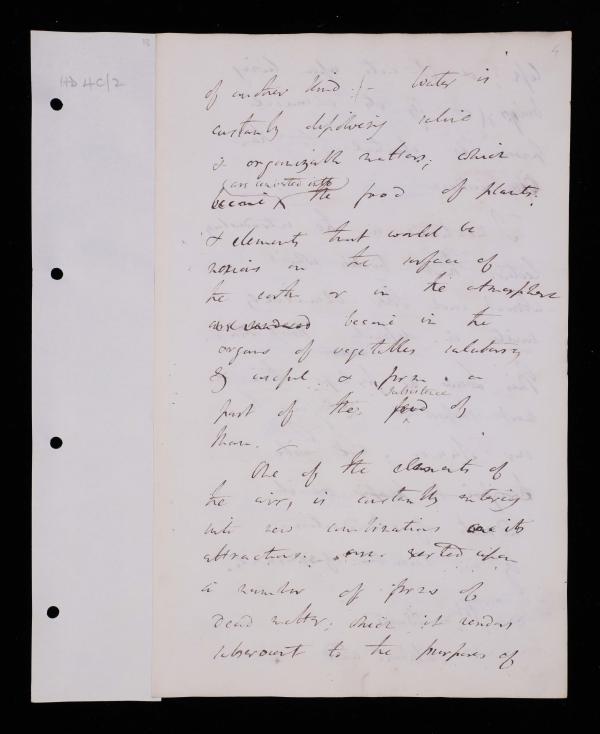 HD 4C/2
4
of another kind :/- Water is
constantly dissolving saline
& organizable matters; which
are converted into
become the food of plants.
& elements that would be
noxious on the surface of
the earth or in the atmosphere
are rendered become in the
organs of vegetables salutary
& useful. & form a
subsistence
part of the food of
Man. —
One of the elements of
the air, is constantly entering
into new combinations its
attractions are exerted upon
a number of forms of
dead matter; which it renders
subservient to the purposes of